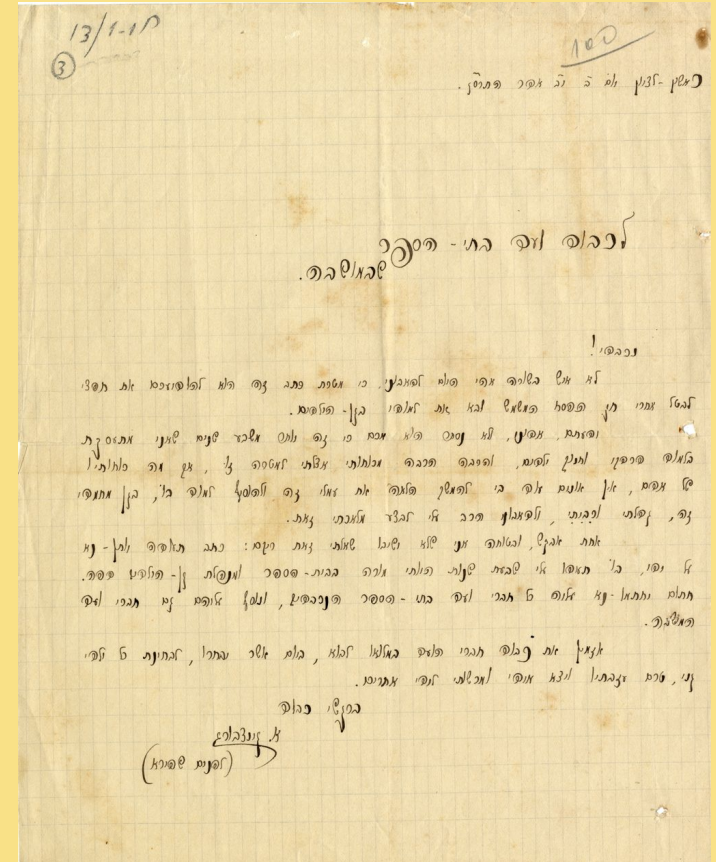 13/1-ח
3
ראשון-לציון א״ם ב׳ י״ב אדר התרס״ז.
לכבוד ועד בתי-הספר
שבמושבה.
נכבדי!
לא איש בשורה אהי היום לדאבוני, כי מטרת כתב זה היא להודיעכם את חפצי
לבטל אחרי חג הפסח המשמש ובא את למודי בגן-הילדים.
וידעתם, אדוני, לא נסתר הוא מכם כי זה יותר משבע שנים שאני מתעסקת
בלמוד הדרדקי וחנוך ילדים, והרבה הרבה מכחותי אצלתי למטרה זו, אך מה כחותיו
של אדם, אין אונים עוד בי להמשיך הלאה את עמלי זה ולהוסיף למוד בו, בגן מחמדי
זה, גדלתי ורביתי, ולדאבוני הרב עלי לבצע מלאכתי זאת.
אחת אבקש, ובטוחה אני שלא ישיבו שאלתי זאת ריקם: כתב תעודה יתן-נא
על ידי, בו תעידו עלי שבעת שנות היותי מורה בבית-הספר ומנהלת גן-הילדים הזה.
חתום יחתמו-נא עליה כל חברי ועד בתי-הספר הנכבדים, ונוסף עליהם גם חברי ועד
המושבה.
אזמין את כבוד חברי הועד במלואו לבוא, ביום אשר יבחרו, לבחינת כל ילדי
גני, טרם עזבתיו ויצא מידי ומרשותי לידי אחרים.
ברגשי כבוד
א. גינצבורג
(לפנים שפירא)